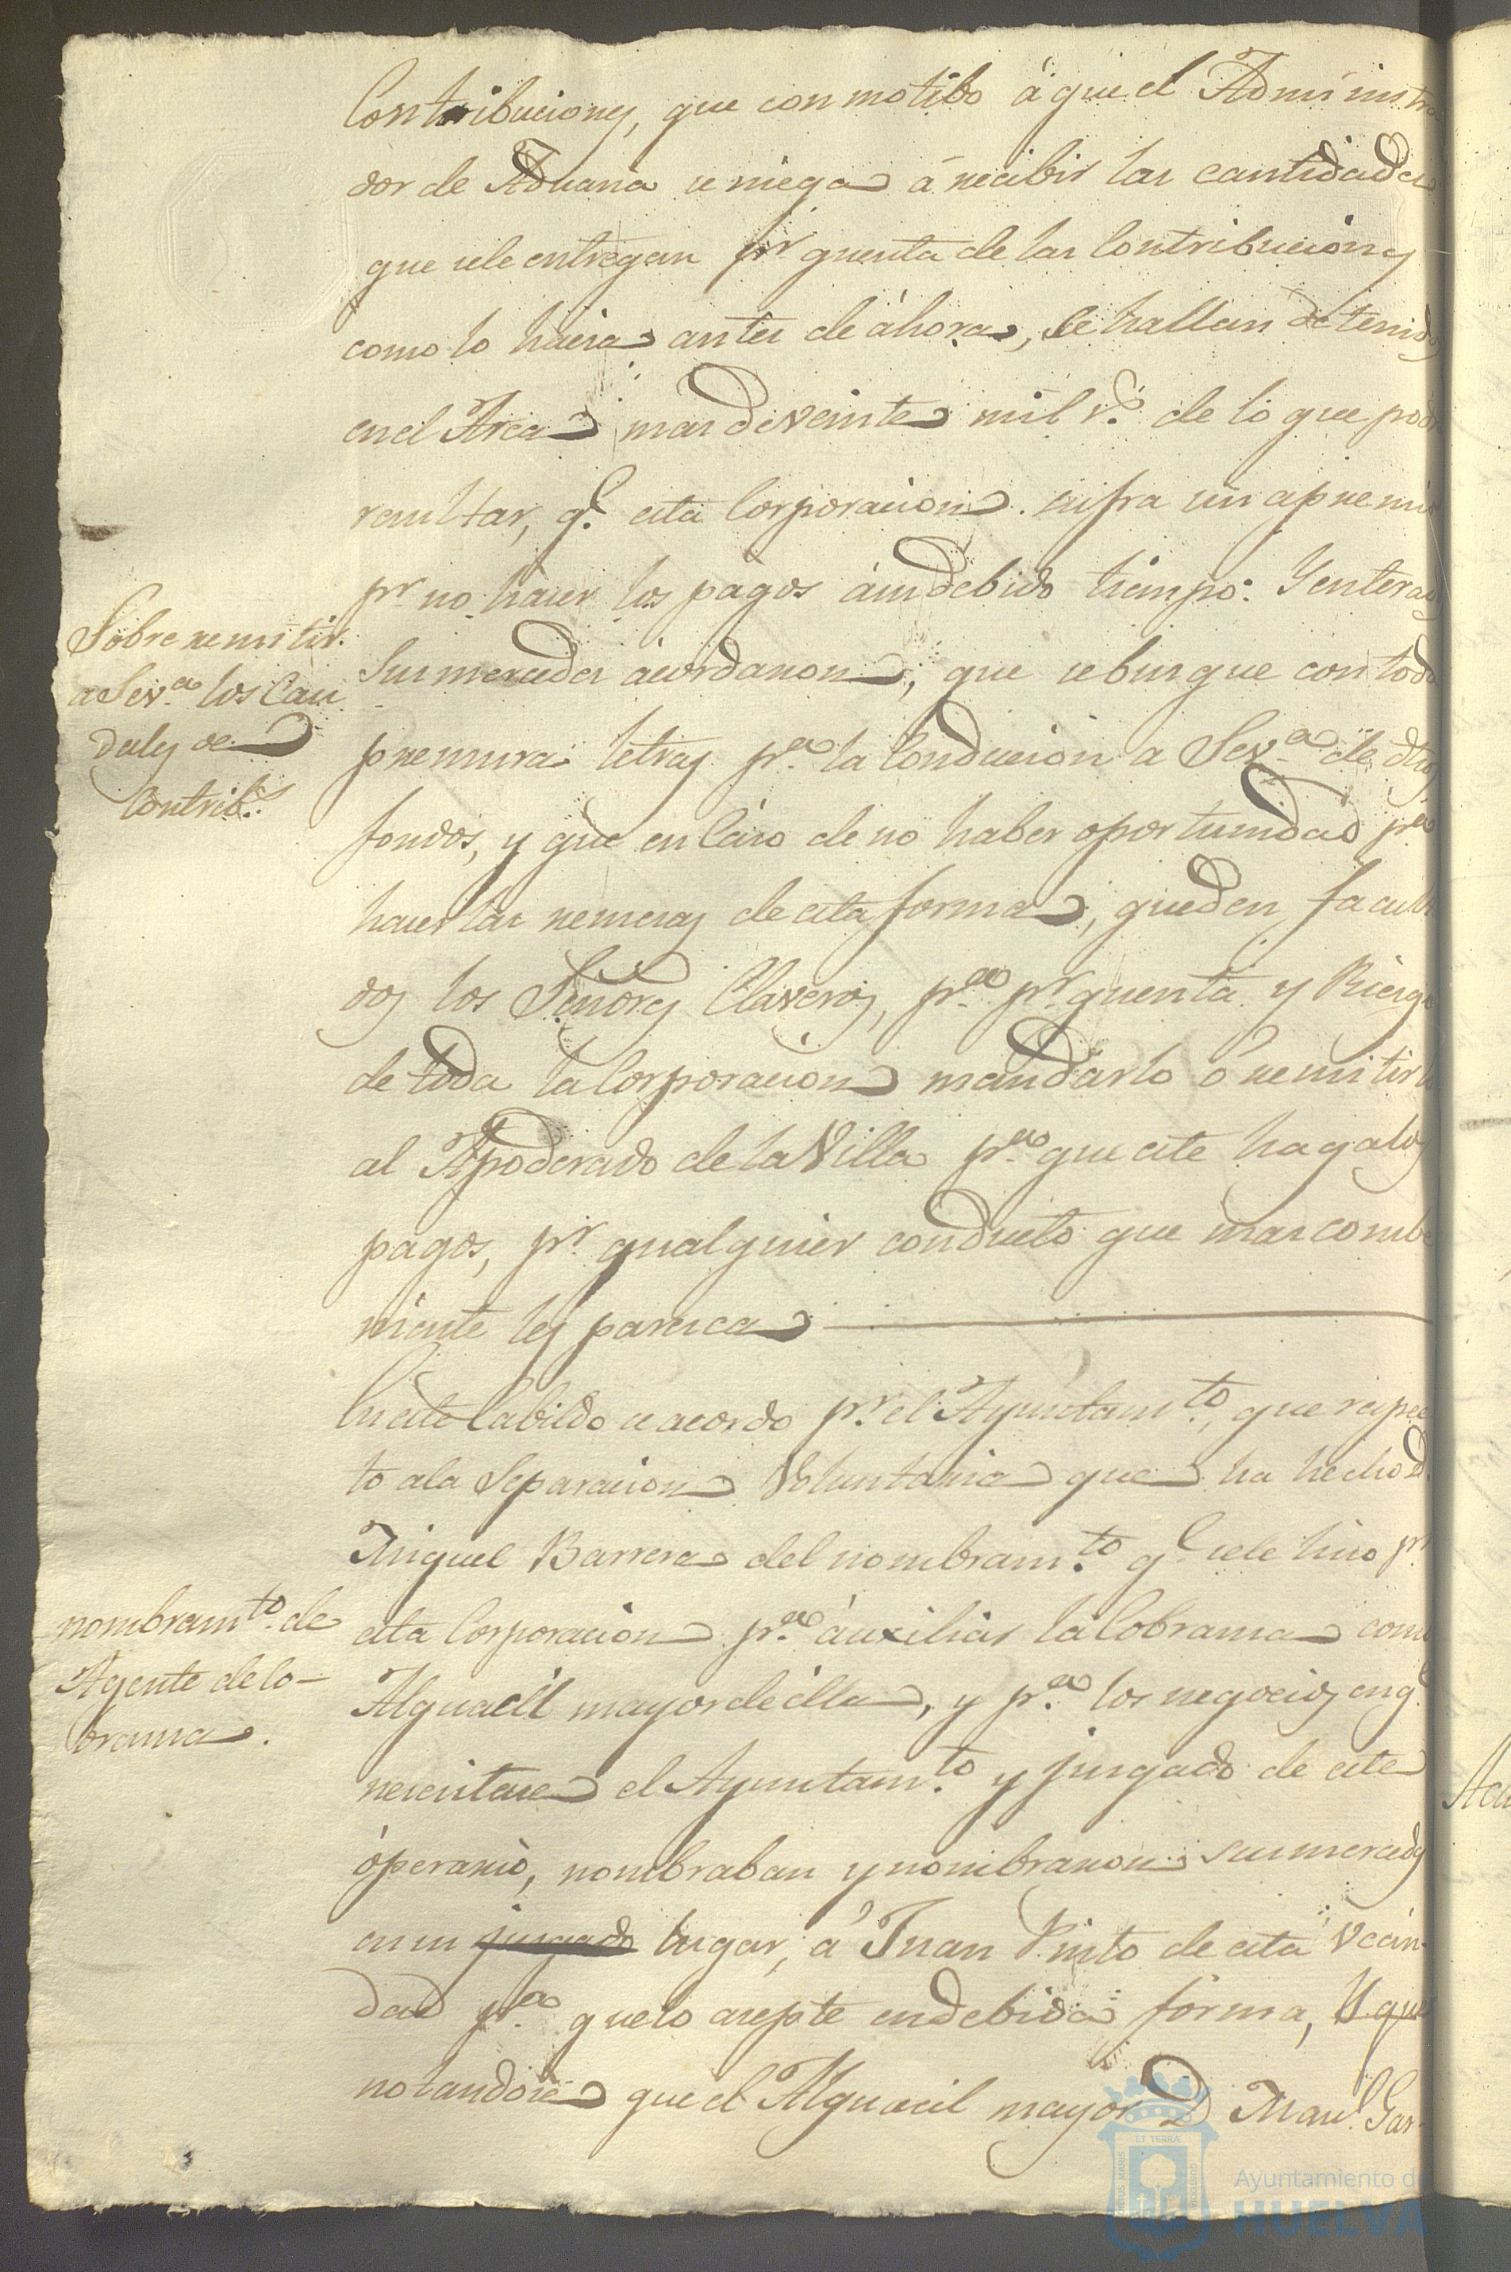 Contribuciones, que con motibo á que el Administra
dor de Aduana se niega á recibir las cantidades
que sele entregan pr quenta de las Contribuciones
como lo hacia antes de áhora, se hallan detenidos
en el Arca mas de veinte mil rs. de lo que podra
resultar, qe. esta Corporacion sufra un apremio
pr no hacer los pagos ásu debido tiempo: Y enterados
Sus mercedes ácordaron, que se busque con toda
premura letras pra. la Conduccion a Seva. de dhos
fondos, y que en Caso de no haber oportunidad pra
hacer las remesas de esta forma, queden faculta
dos los Señores Claveros, pra. pr quenta y Riesgo
de toda la Corporacion mandarlo ó remitirlo
al Apoderado de la Villa pra. que este haga los
pagos, pr. qualquier conducto que mas combe
niente les paresca
Sobre remitir
a Seva. los Cau
dales de
Contribs.
En este Cabildo se acordo pr. el Ayuntamto., que respec
to ala Separacion Voluntaria que ha hecho D.
Miguel Barrera del nombramto. qe sele hiso pr
esta Corporacion pra. áuxiliar la Cobransa como
Alguacil mayor de ella, y pra. los negocios en qe.
nesesitase el Ayuntamto. y jusgado de este
óperario, nombraban y nombraron sus mercedes
en su jusgado lugar, á Juan Pinto de esta Vecin-
dad pra. que lo asepte en debida forma, Y que
notandose que el Alguacil mayor D Manl. Gar-
nombramto. de
Agente de Co-
bransa.
Ayuntamiento de
HUELVA